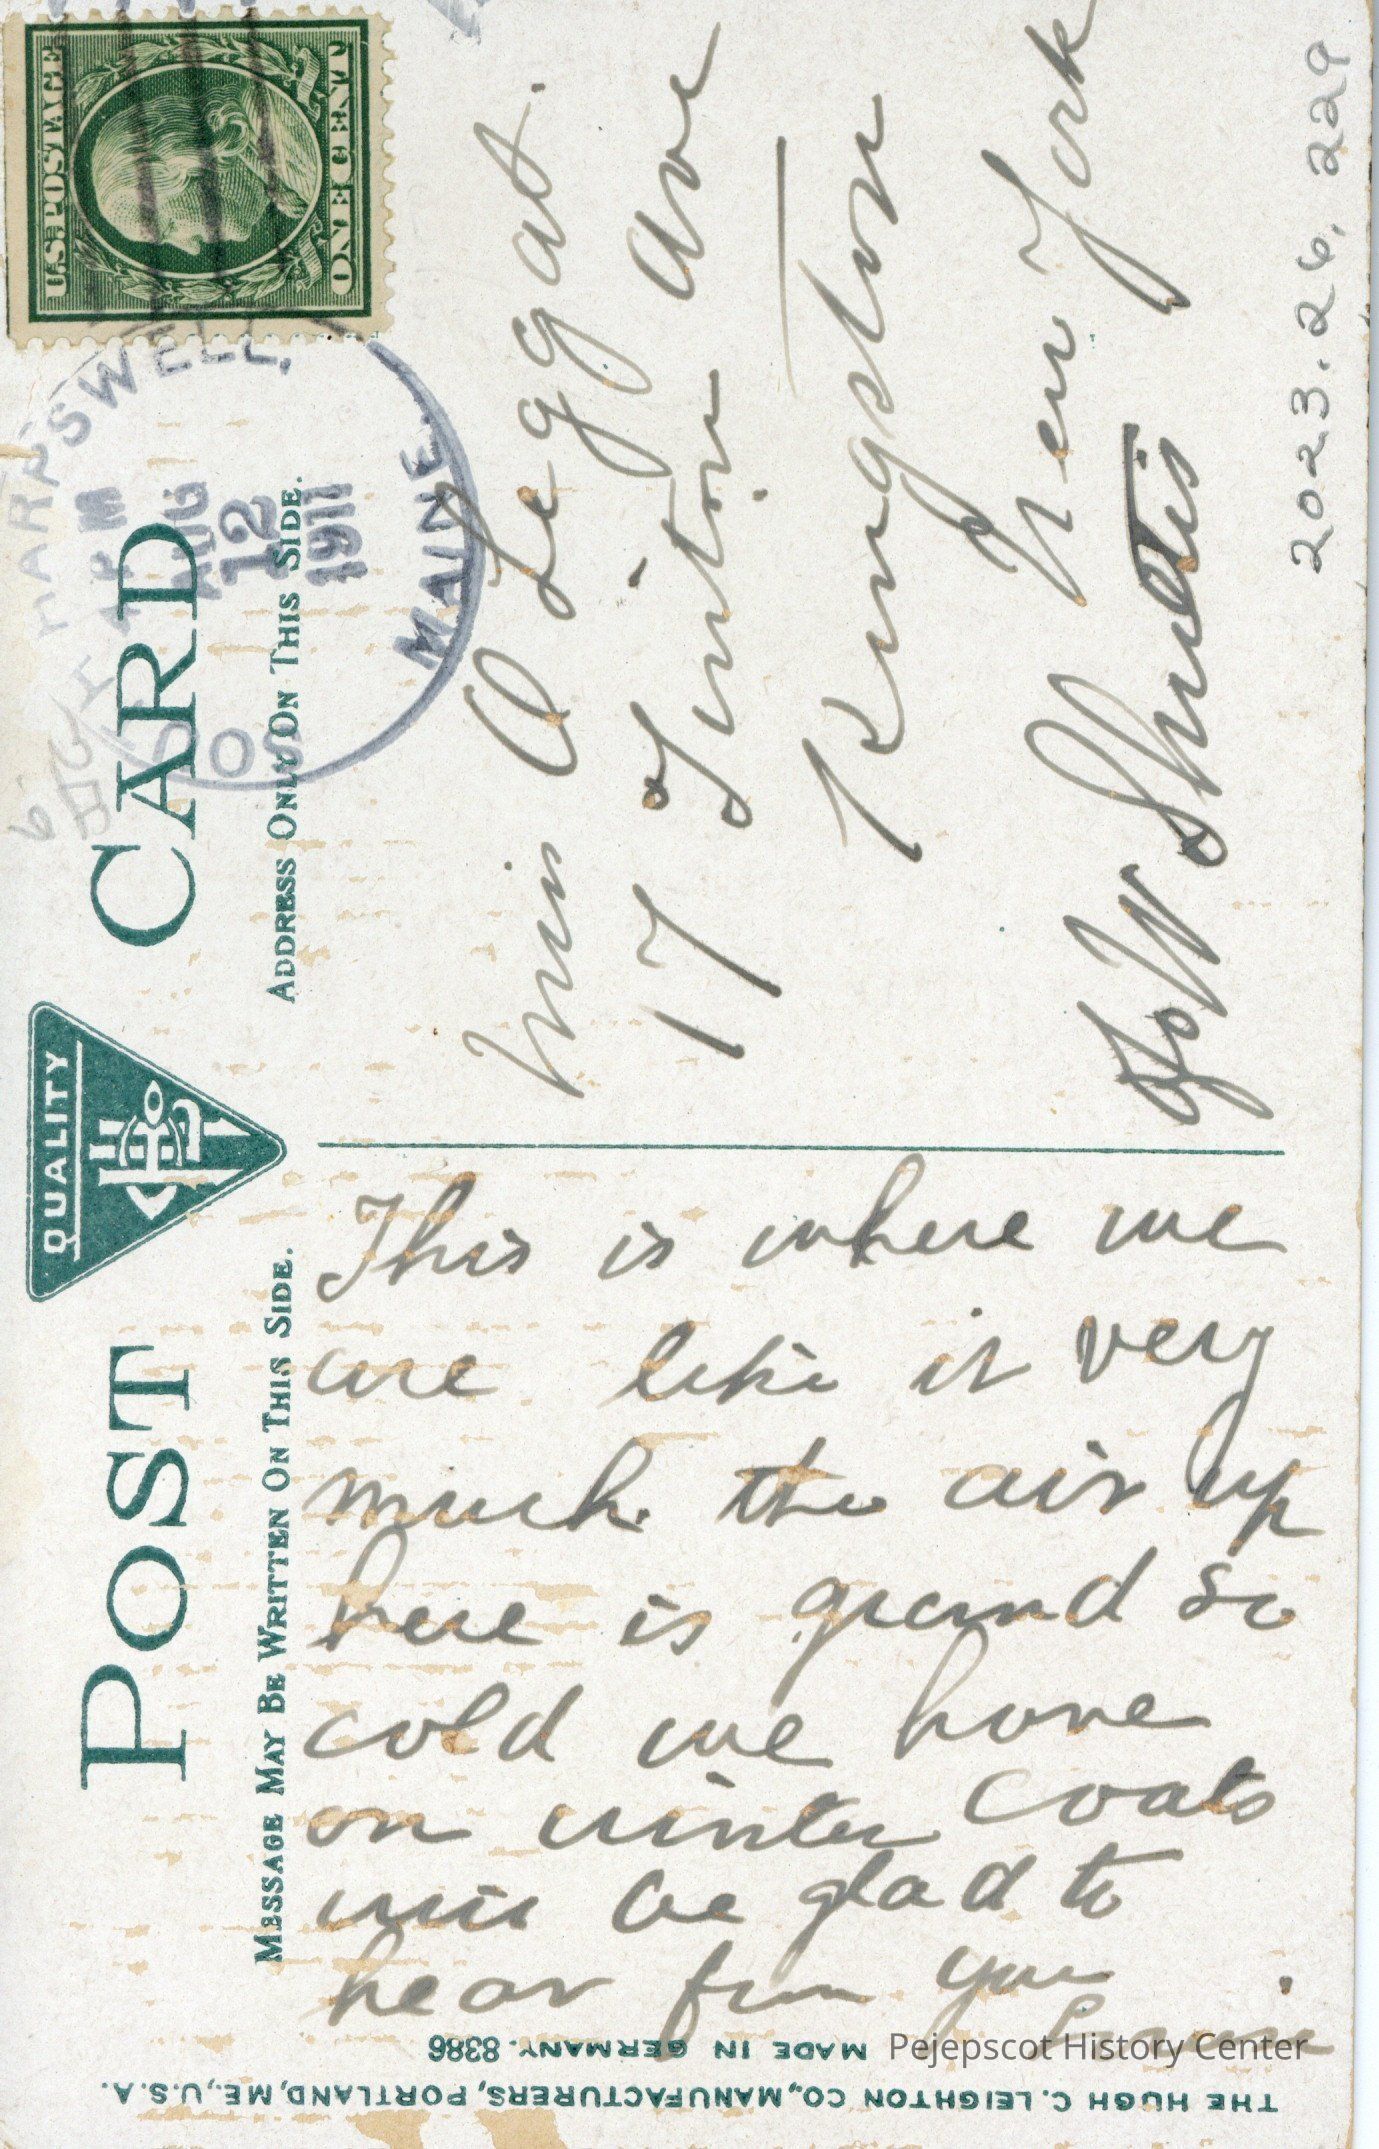 QUALITY
POST CARD
MESSAGE MAY BE WRITTEN ON THIS SIDE.
ADDRESS ONLY ON THIS SIDE.
U.S. POSTAGE
ONE CENT
HARPSWELL,
4 PM
AUG
12
1911
MAINE.
SO
This is where we
are like it very
much. the air up
here is grand so
cold we have
on winter coats
will be glad to
hear from you
Miss A Legat.
17 Linton Ave
Kingston
New York
c/o W
2023.26.229
THE HUGH C. LEIGHTON CO., MANUFACTURERS, PORTLAND, ME., U.S.A.
MADE IN GERMANY. 8386
Pejepscot History Center